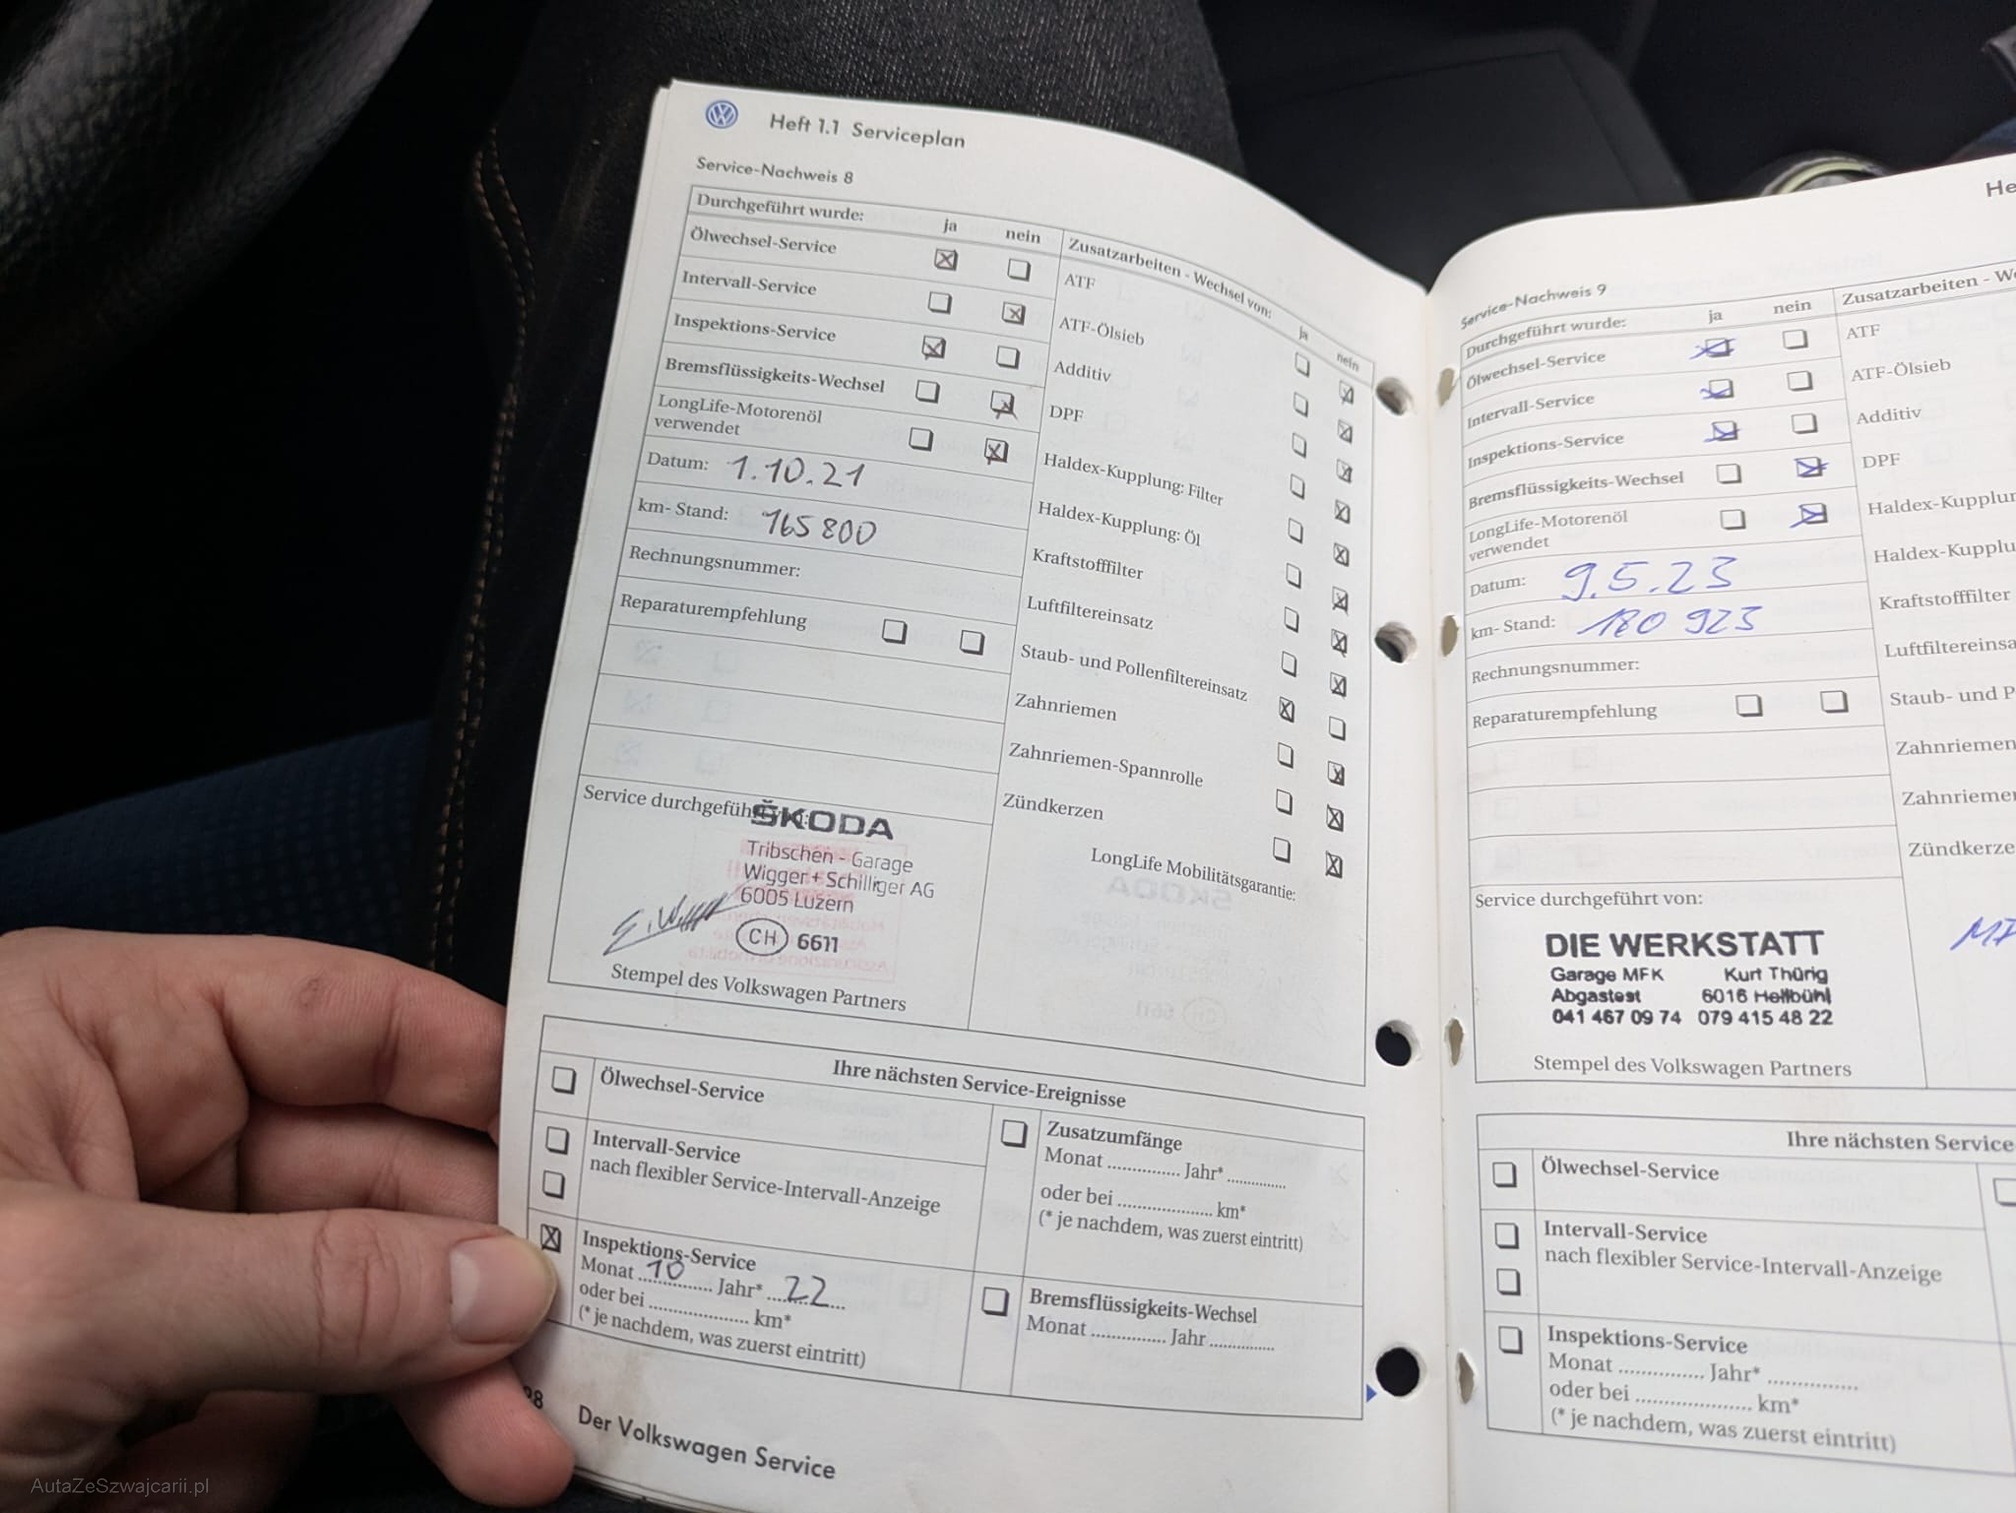 Heft 1.1 Serviceplan
Service-Nachweis 8
Durchgeführt wurde: ja nein
Ölwechsel-Service
Intervall-Service
Inspektions-Service
Bremsflüssigkeits-Wechsel
LongLife-Motorenöl
verwendet
Datum: 1.10.21
km- Stand: 165 800
Rechnungsnummer:
Reparaturempfehlung
Zusatzarbeiten - Wechsel von: ja nein
ATF
ATF-Ölsieb
Additiv
DPF
Haldex-Kupplung: Filter
Haldex-Kupplung: Öl
Kraftstofffilter
Luftfiltereinsatz
Staub- und Pollenfiltereinsatz
Zahnriemen
Zahnriemen-Spannrolle
Zündkerzen
LongLife Mobilitätsgarantie:
Service durchgeführt
ŠKODA
Tribschen - Garage
Wigger + Schilliger AG
6005 Luzern
CH 6611
Stempel des Volkswagen Partners
Ihre nächsten Service-Ereignisse
Ölwechsel-Service
Intervall-Service
nach flexibler Service-Intervall-Anzeige
Inspektions-Service
Monat 10 Jahr* 22
oder bei .................... km*
(* je nachdem, was zuerst eintritt)
Zusatzumfänge
Monat .............. Jahr* ..............
oder bei .................... km*
(* je nachdem, was zuerst eintritt)
Bremsflüssigkeits-Wechsel
Monat .............. Jahr ..............
Der Volkswagen Service
He
Service-Nachweis 9
Durchgeführt wurde: ja nein
Ölwechsel-Service
Intervall-Service
Inspektions-Service
Bremsflüssigkeits-Wechsel
LongLife-Motorenöl
verwendet
Datum: 9.5.23
km- Stand: 180 923
Rechnungsnummer:
Reparaturempfehlung
Zusatzarbeiten - We
ATF
ATF-Ölsieb
Additiv
DPF
Haldex-Kupplun
Haldex-Kupplu
Kraftstofffilter
Luftfiltereinsa
Staub- und P
Zahnriemen
Zahnriemen
Zündkerze
Service durchgeführt von:
DIE WERKSTATT
Garage MFK Kurt Thürig
Abgastest 6016 Hellbühl
041 467 09 74 079 415 48 22
Stempel des Volkswagen Partners
Ihre nächsten Service
Ölwechsel-Service
Intervall-Service
nach flexibler Service-Intervall-Anzeige
Inspektions-Service
Monat .............. Jahr* ..............
oder bei .................... km*
(* je nachdem, was zuerst eintritt)
AutaZeSzwajcarii.pl